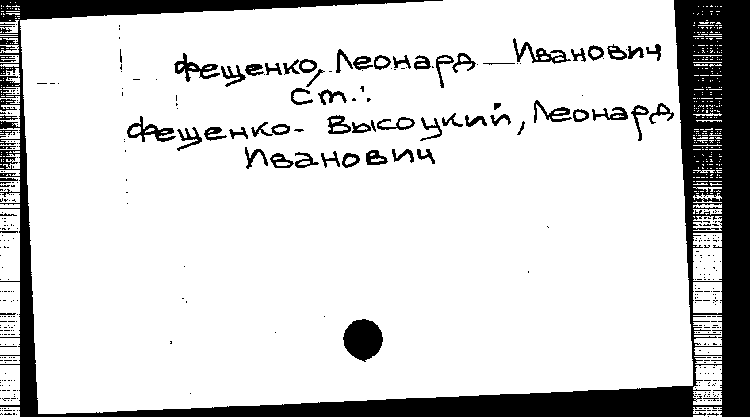 Фещенко, Леонард Иванович
Ст.:
Фещенко-Высоцкий, Леонард
Иванович